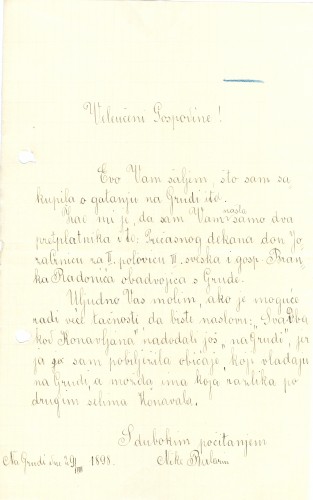 Veleučeni Gospodine!
Evo Vam šaljem, što sam sa
kupila o gatanju na Grudi itd.
Žao mi je, da sam Vam našla samo dva
predplatnika i to: Prečasnog dekana don Jo
za II. polovicu III. sveska i gosp. Bran
ka Radonića obadvojica s Grude.
Uljudno Vas molim, ako je moguće
radi veće tačnosti da biste naslovu: „Svadba
kod Konavljana" nadodali još „na Grudi", jer
ja sam pobilježila običaje, koji vladaju
na Grudi, a možda ima koja razlika po
drugim selima Konavala.
S dubokim počitanjem
Na Grudi dne 29/III 1898. Nike Balarin